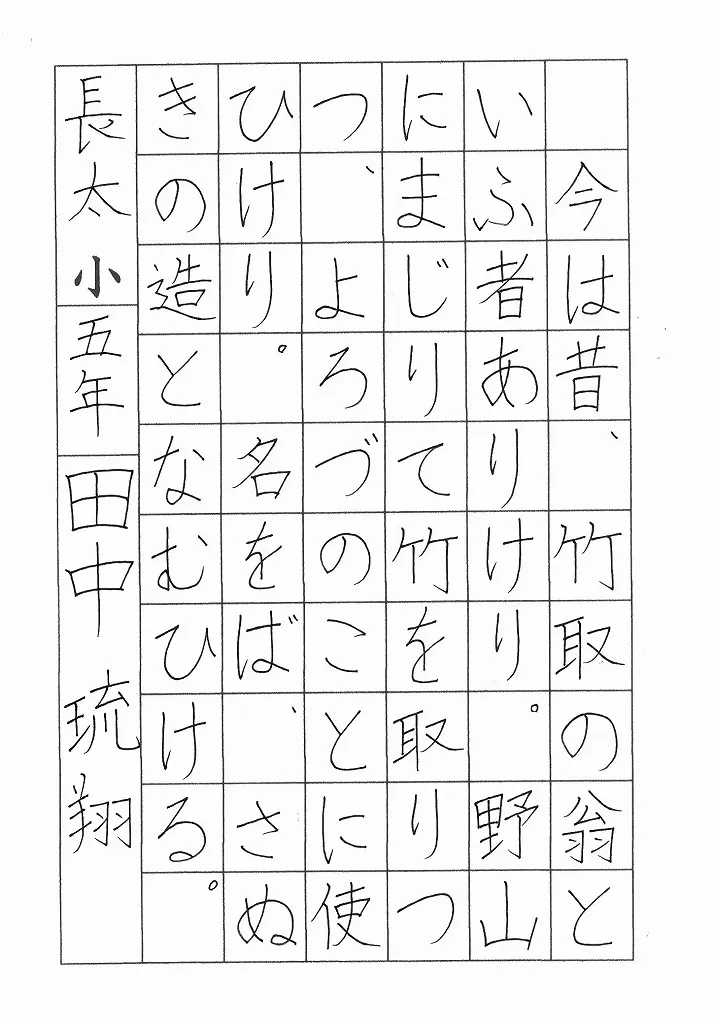 今は昔、竹取の翁と
いふ者ありけり。野山
にまじりて竹を取りつ
つ、よろづのことに使
ひけり。名をば、さぬ
きの造となむひける。
長太小五年田中琉翔